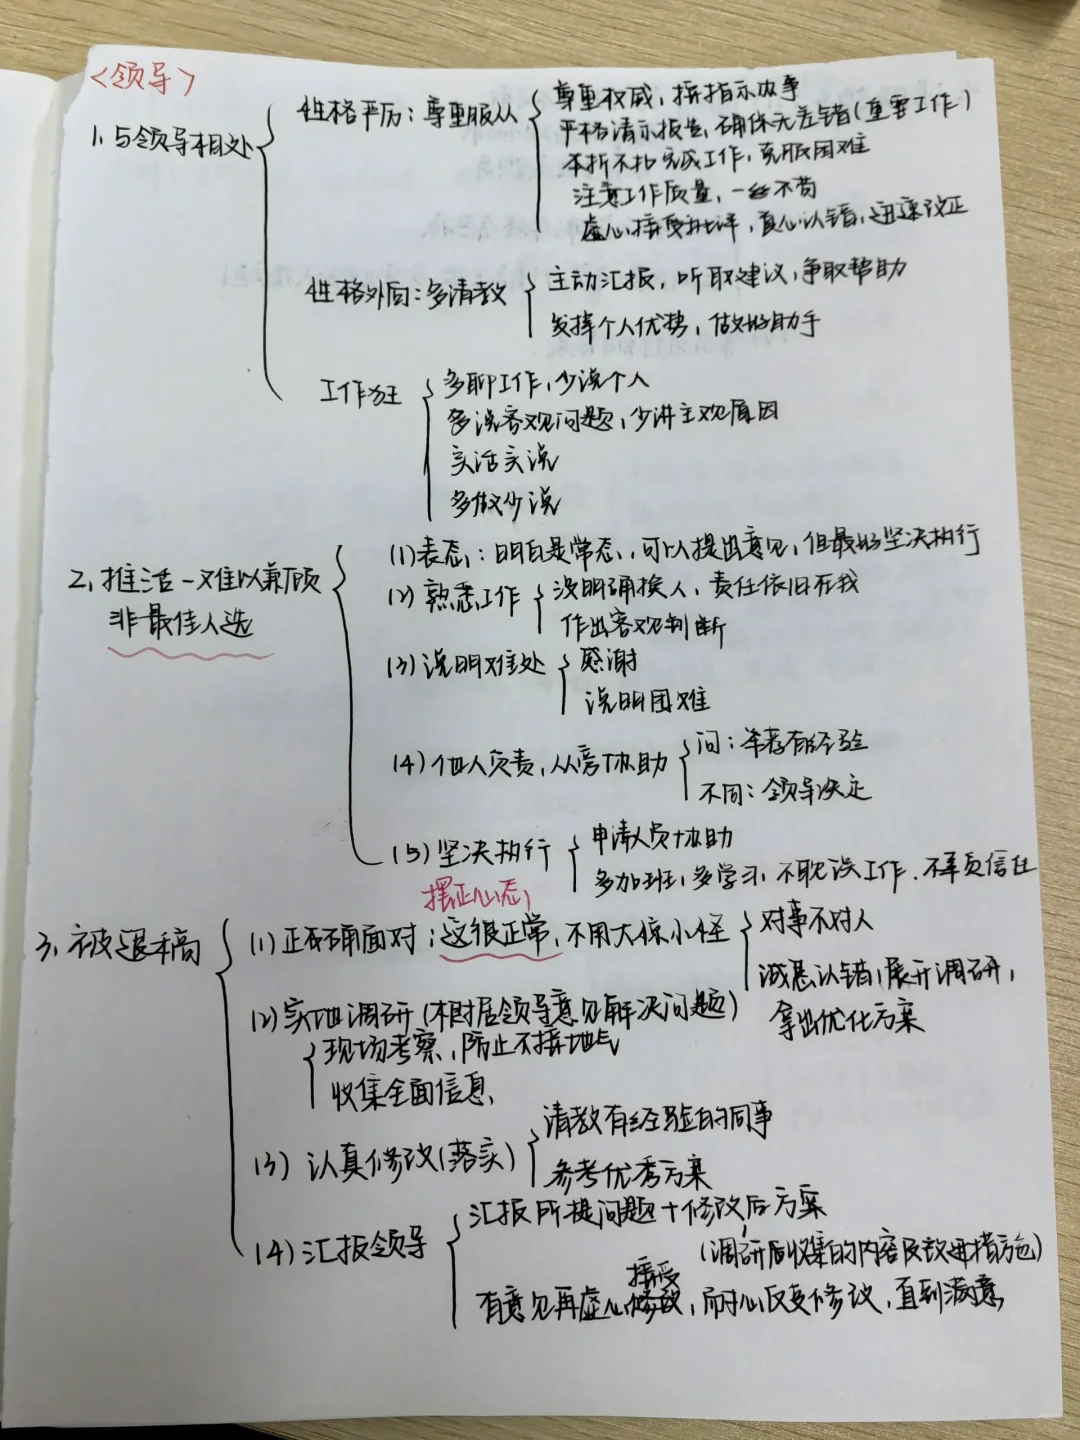 <领导>
1. 与领导相处
性格严厉：尊重服从
尊重权威，按指示办事
严格请示报告，确保无差错(重要工作)
不折不扣完成工作，克服困难
注意工作质量，一丝不苟
虚心接受批评，真心认错，迅速改正
性格外向：多请教
主动汇报，听取建议，争取帮助
发挥个人优势，做好助手
工作狂
多聊工作，少说个人
多说客观问题，少讲主观原因
实话实说
多做少说
2. 推活-难以兼顾
非最佳人选
(1) 表态：明白是常态，可以提出意见，但最好坚决执行
(2) 熟悉工作
没明确换人，责任依旧在我
作出客观判断
(3) 说明难处
感谢
说明困难
(4) 他人负责，从旁协助
同：年老有经验
不同：领导决定
(5) 坚决执行
申请人员协助
多加班，多学习，不耽误工作，不辜负信任
3. 被退稿
摆正心态，
(1) 正确面对：这很正常，不用大惊小怪
对事不对人
诚恳认错，展开调研，
拿出优化方案
(2) 实地调研(根据领导意见解决问题)
现场考察，防止不接地气
收集全面信息，
(3) 认真修改(落实)
请教有经验的同事
参考优秀方案
(4) 汇报领导
汇报所提问题+修改后方案
(调研后收集的内容及改进措施)
有意见再虚心接受，耐心反复修改，直到满意，